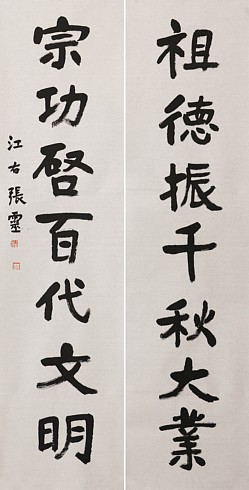 祖德振千秋大業
宗功啓百代文明
江右張靈